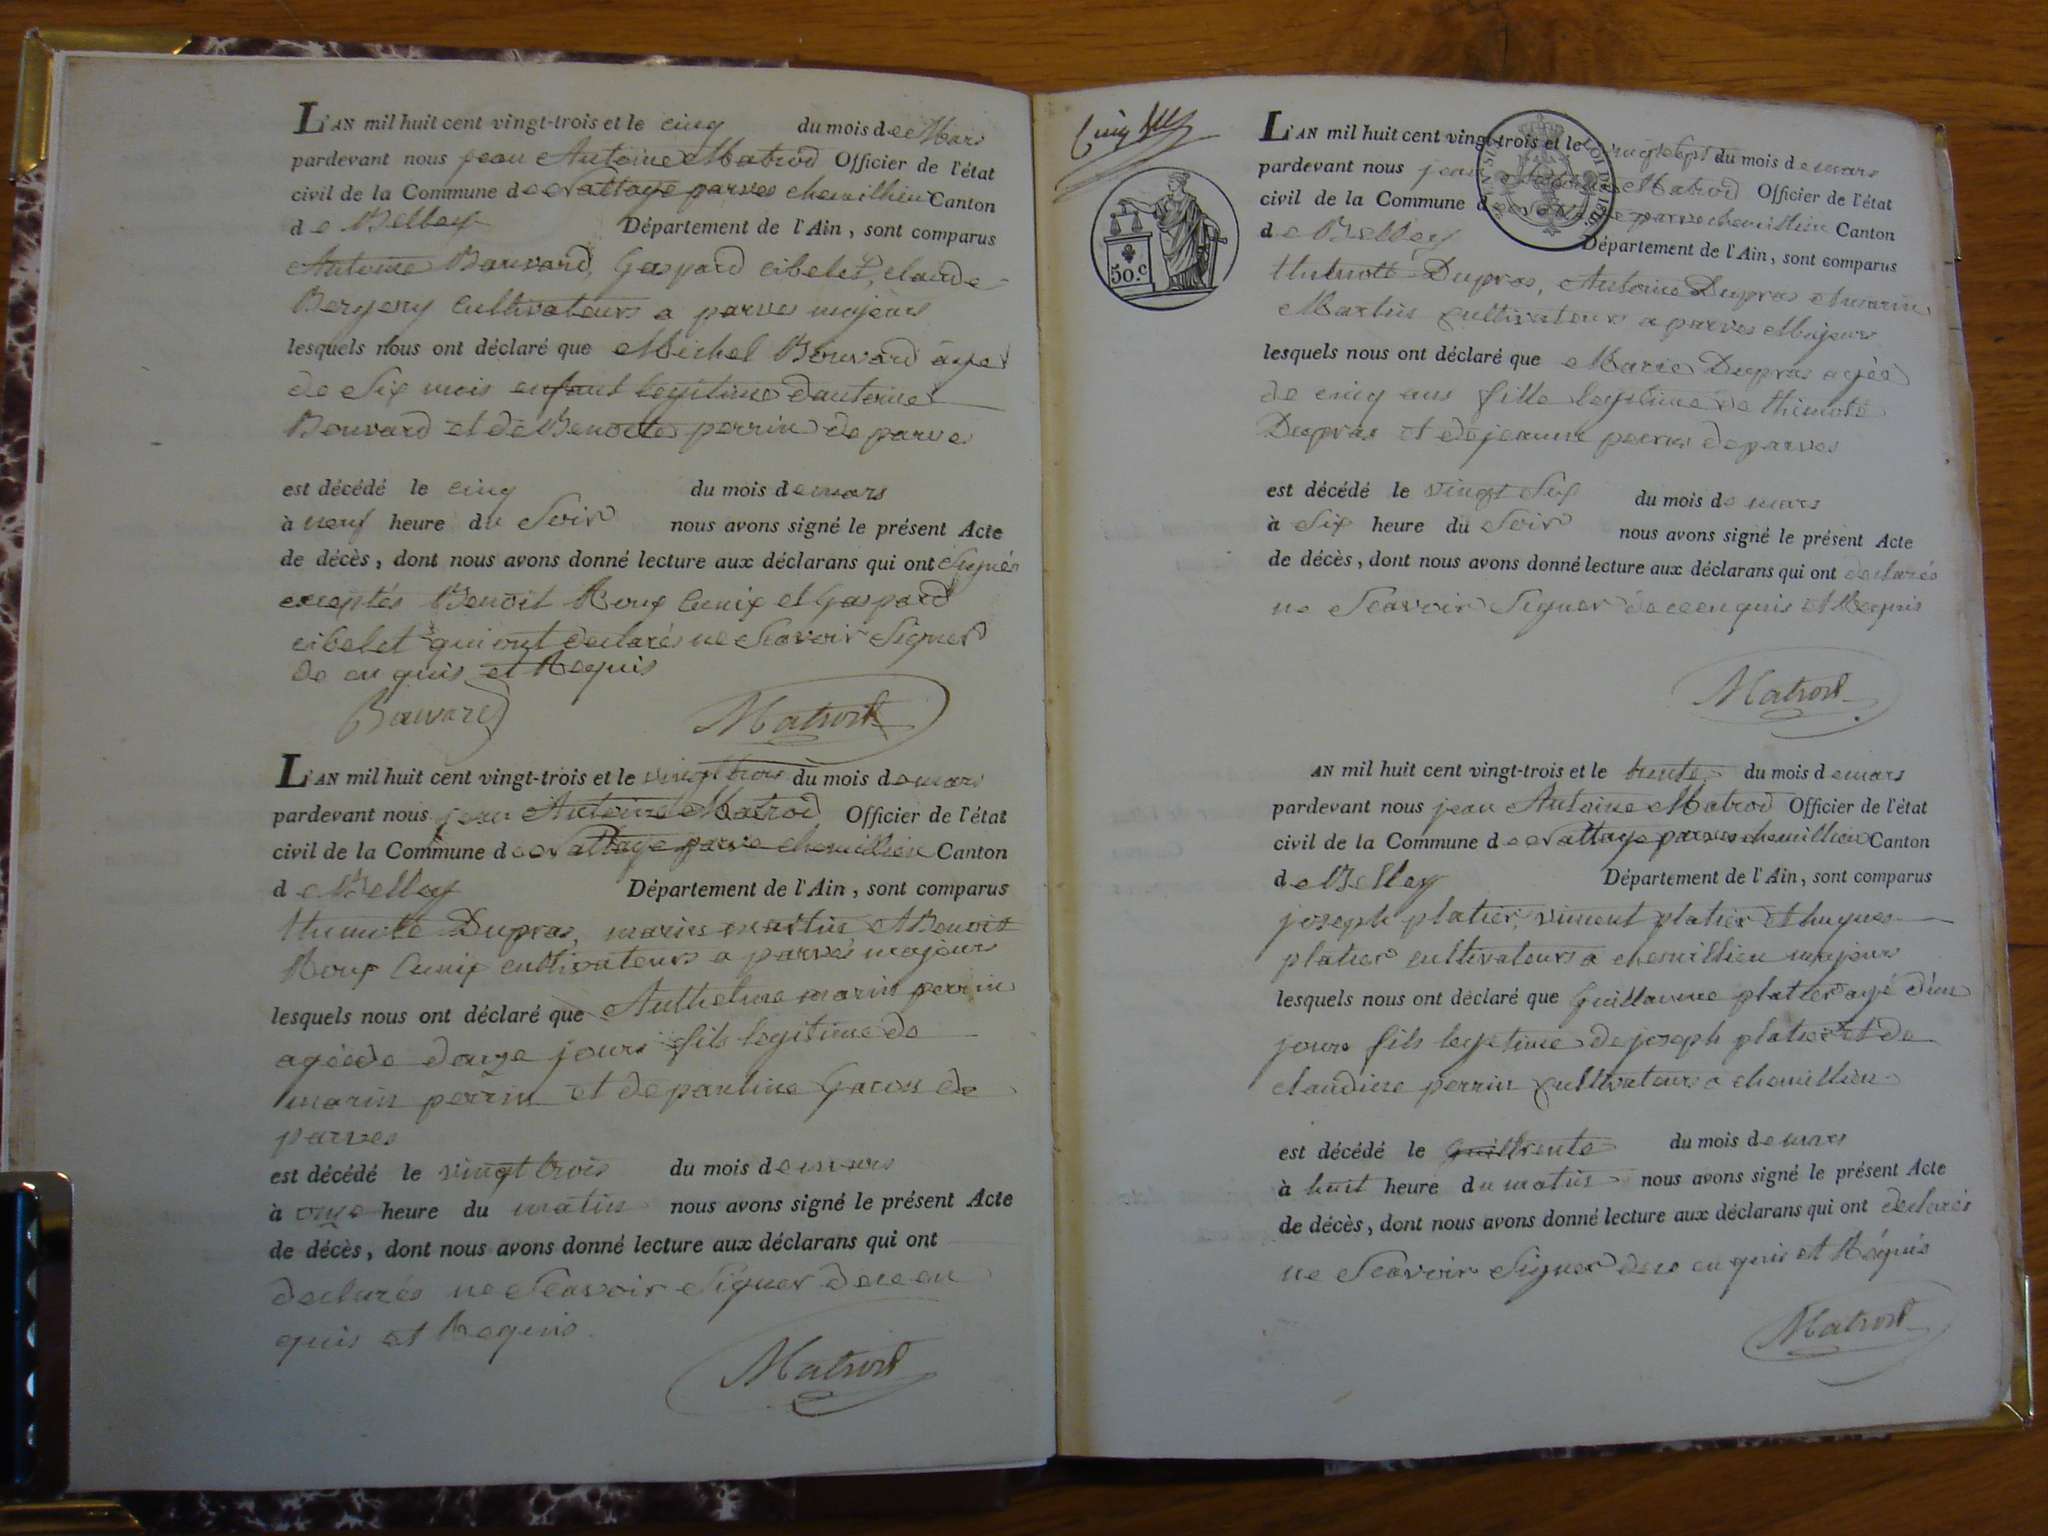 L'AN mil huit cent vingt-trois et le cinq du mois de Mars
pardevant nous jean Antoine Matrod Officier de l'état
civil de la Commune de Nattage parves chemillieu Canton
de Belley Département de l'Ain, sont comparus
Antoine Bouvard, Gaspard cibelet, claude
Bergeny cultivateurs a parves majeurs
lesquels nous ont déclaré que Michel Bouvard agé
de Six mois enfant legitime dantoine
Bouvard et de Benoite perrin de parves
est décédé le cinq du mois de mars
à neuf heure du Soir nous avons signé le présent Acte
de décès, dont nous avons donné lecture aux déclarans qui ont Signés
exceptés Benoit Roux Cunix et Gaspard
cibelet qui ont declarés ne Scavoir Signer
de en quis et Requis
Bouvard Matrod
L'AN mil huit cent vingt-trois et le vingt trois du mois de mars
pardevant nous jean Antoine Matrod Officier de l'état
civil de la Commune de Nattage parve chemillieu Canton
de Belley Département de l'Ain, sont comparus
thimoté Dupras, marin martin et Benoit
Roux Cunix cultivateurs a parves majeurs
lesquels nous ont déclaré que Anthelme marin perrin
agée de douze jours fils legitime de
marin perrin et de pauline Gacon de
parves
est décédé le vingt trois du mois de mars
à onze heure du matin nous avons signé le présent Acte
de décès, dont nous avons donné lecture aux déclarans qui ont
declarés ne Scavoir Signer de ce en
quis et Requis.
Matrod
50.c
L'AN mil huit cent vingt-trois et le vingt sept du mois de mars
pardevant nous jean Antoine Matrod Officier de l'état
civil de la Commune de Nattage parves chemillieu Canton
de Belley Département de l'Ain, sont comparus
thimoté Dupras, Antoine Dupras et marin
Martin cultivateurs a parves Majeurs
lesquels nous ont déclaré que Marie Dupras agée
de cinq ans fille legitime de thimoté
Dupras et de jeanne perrin de parves
est décédé le vingt Six du mois de mars
à Six heure du Soir nous avons signé le présent Acte
de décès, dont nous avons donné lecture aux déclarans qui ont declarés
ne Scavoir Signer de ce en quis et Requis
Matrod
AN mil huit cent vingt-trois et le trente du mois de mars
pardevant nous jean Antoine Matrod Officier de l'état
civil de la Commune de Nattage parves chemillieu Canton
de Belley Département de l'Ain, sont comparus
joseph platier, vincent platier et hugues
platier cultivateurs a chemillieu majeurs
lesquels nous ont déclaré que Guillaume platier agé d'un
jour fils legitime de joseph platier et de
claudine perrin cultivateurs a chemillieu
est décédé le trente du mois de mars
à huit heure du matin nous avons signé le présent Acte
de décès, dont nous avons donné lecture aux déclarans qui ont declarés
ne Scavoir Signer de ce en quis et Requis
Matrod